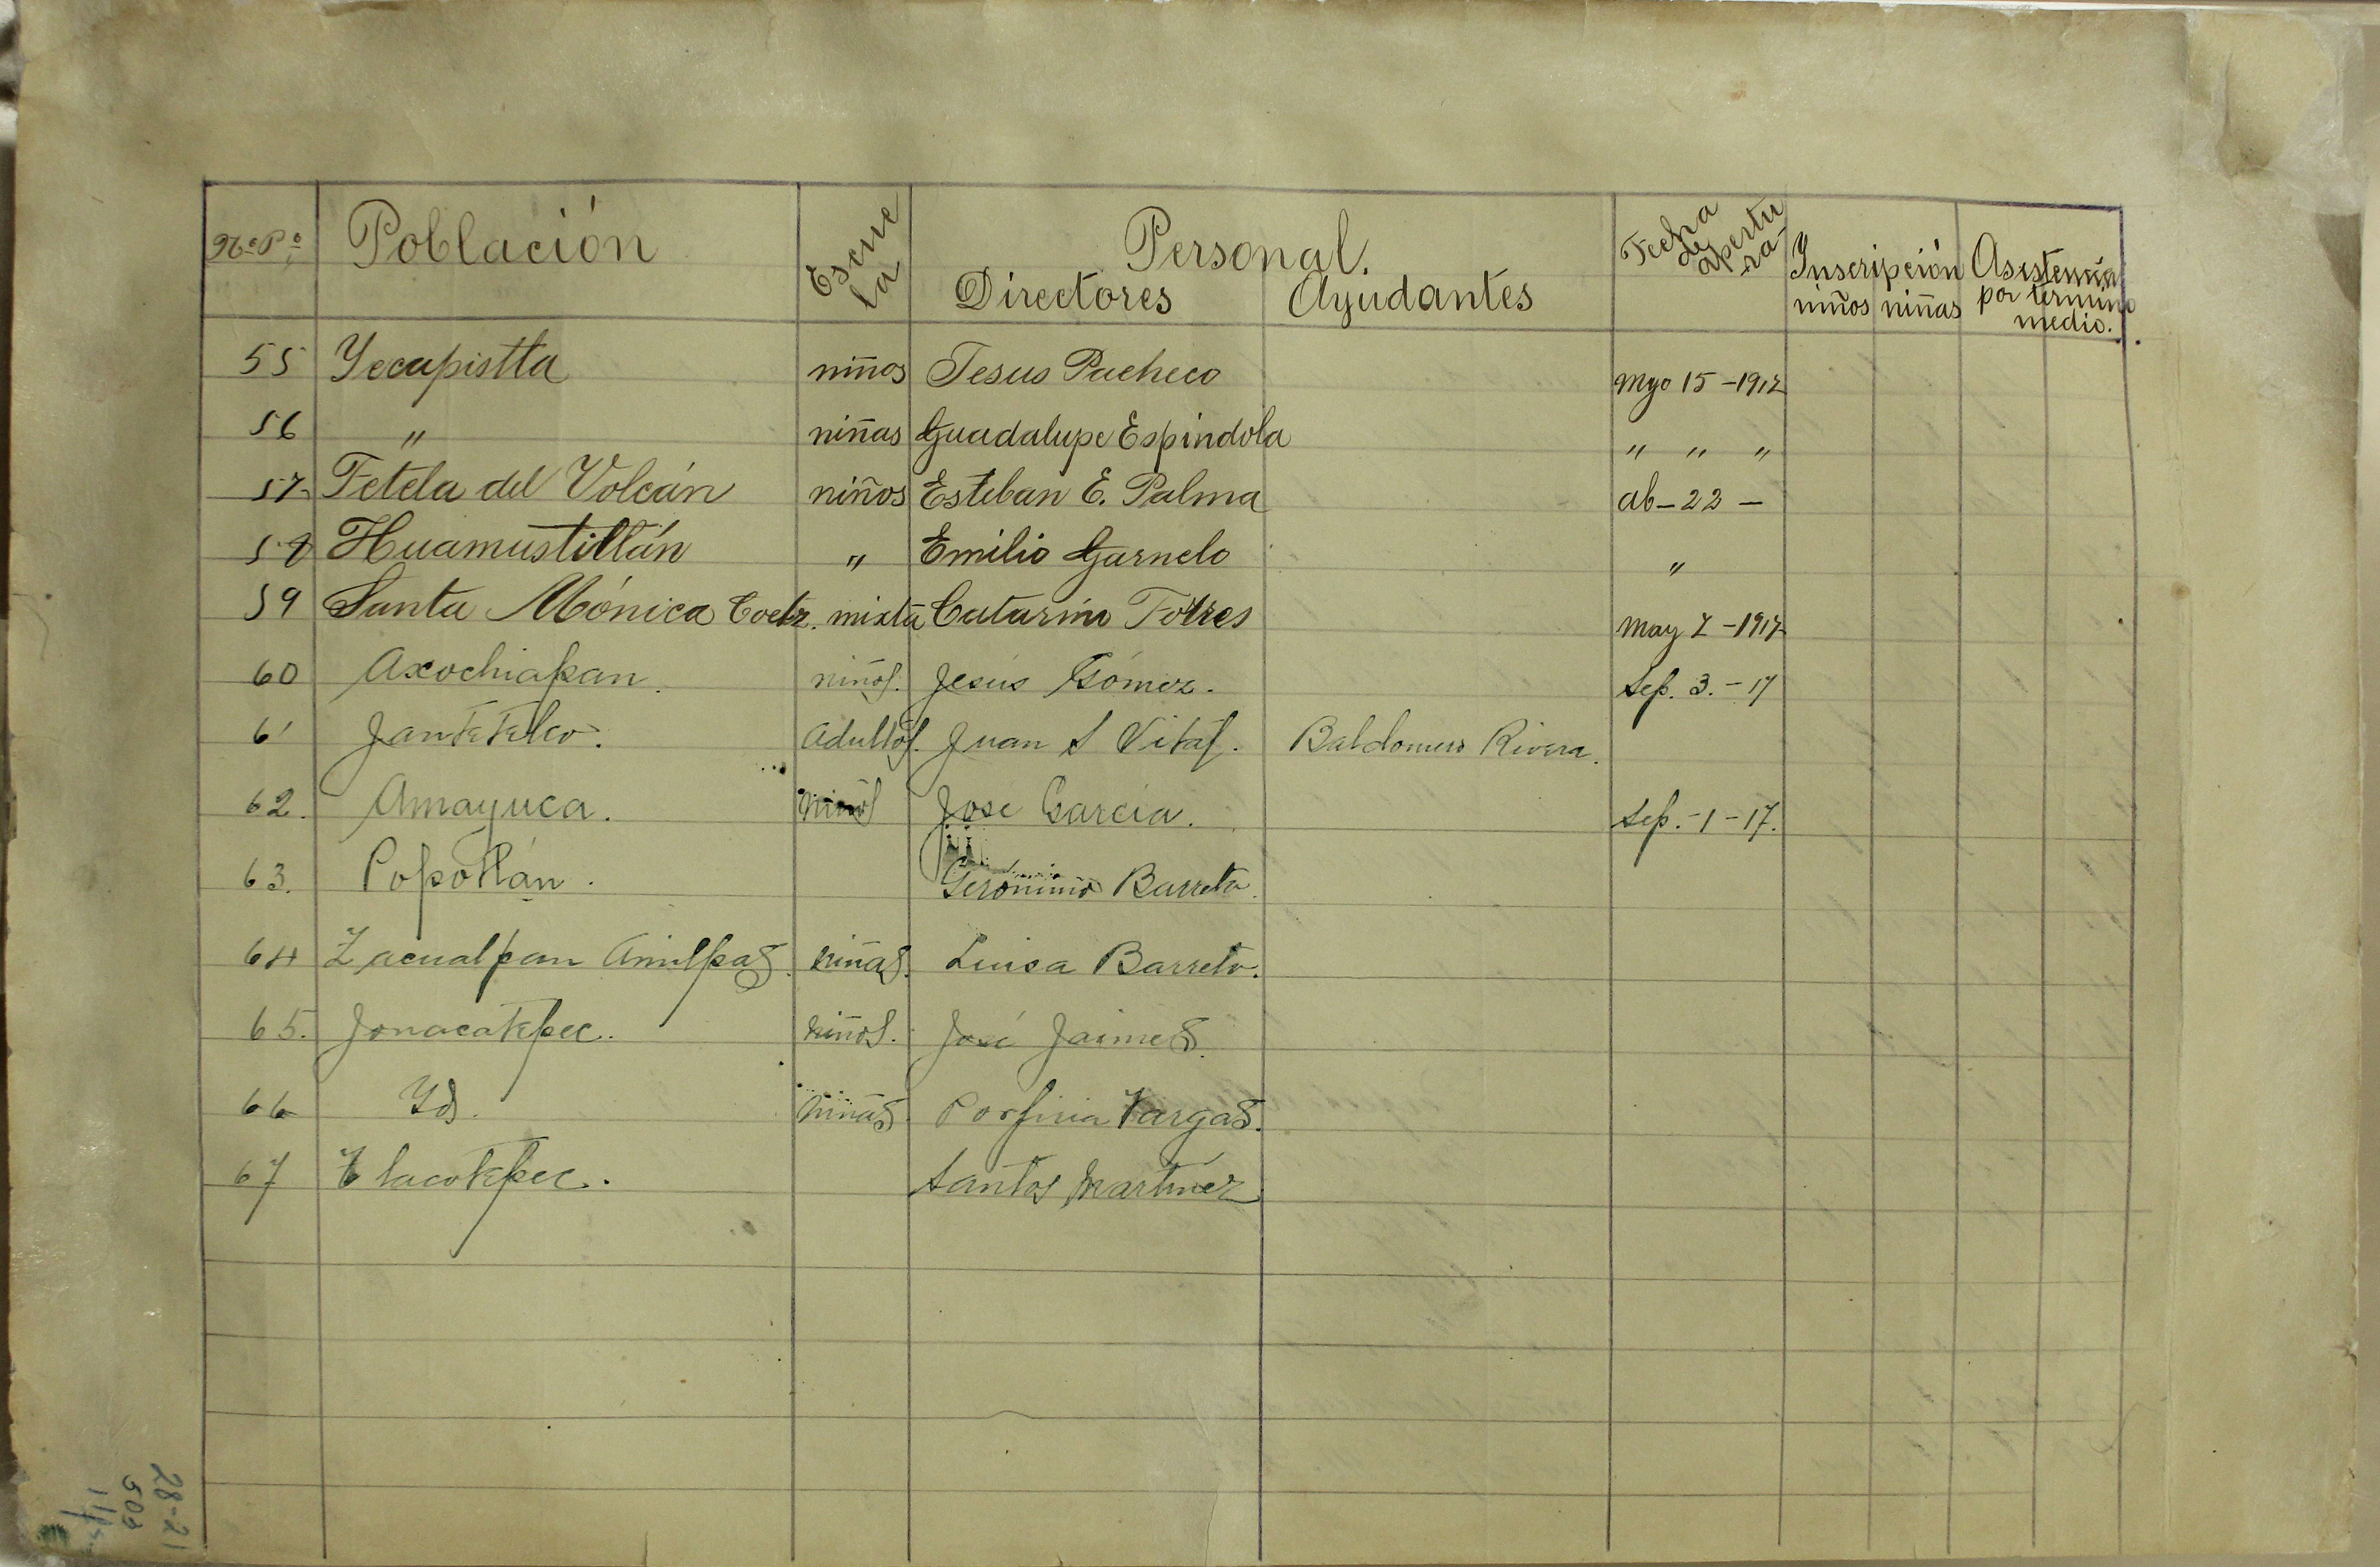 No. Po. Población Escuela Personal. Fecha de apertura Inscripción Asistencia
Directores Ayudantes niños niñas por termino medio.
55 Yecapistla niños Jesus Pacheco Myo 15 - 1917
56 " niñas Guadalupe Espindola " " "
57 Tetela del Volcán niños Esteban E. Palma ab - 22 -
58 Huamustitlán " Emilio Garnelo "
59 Santa Mónica Coetz. mixta Catarino Torres May 7 - 1917
60 Axochiapan. niños. Jesús Gómez. Sep. 3. - 17
61 Jantetelco. Adultos. Juan S Vital. Baldomero Rivera.
62. Amayuca. niños José García. Sep. - 1 - 17.
63. Popotlán. Gerónimo Barreto.
64 Zacualpan Amilpas. niñas. Luisa Barreto.
65. Jonacatepec. niños. José Jaimes.
66 Yd. niñas Porfiria Vargas.
67 Tlacotepec. Santos Martínez
28-21
503